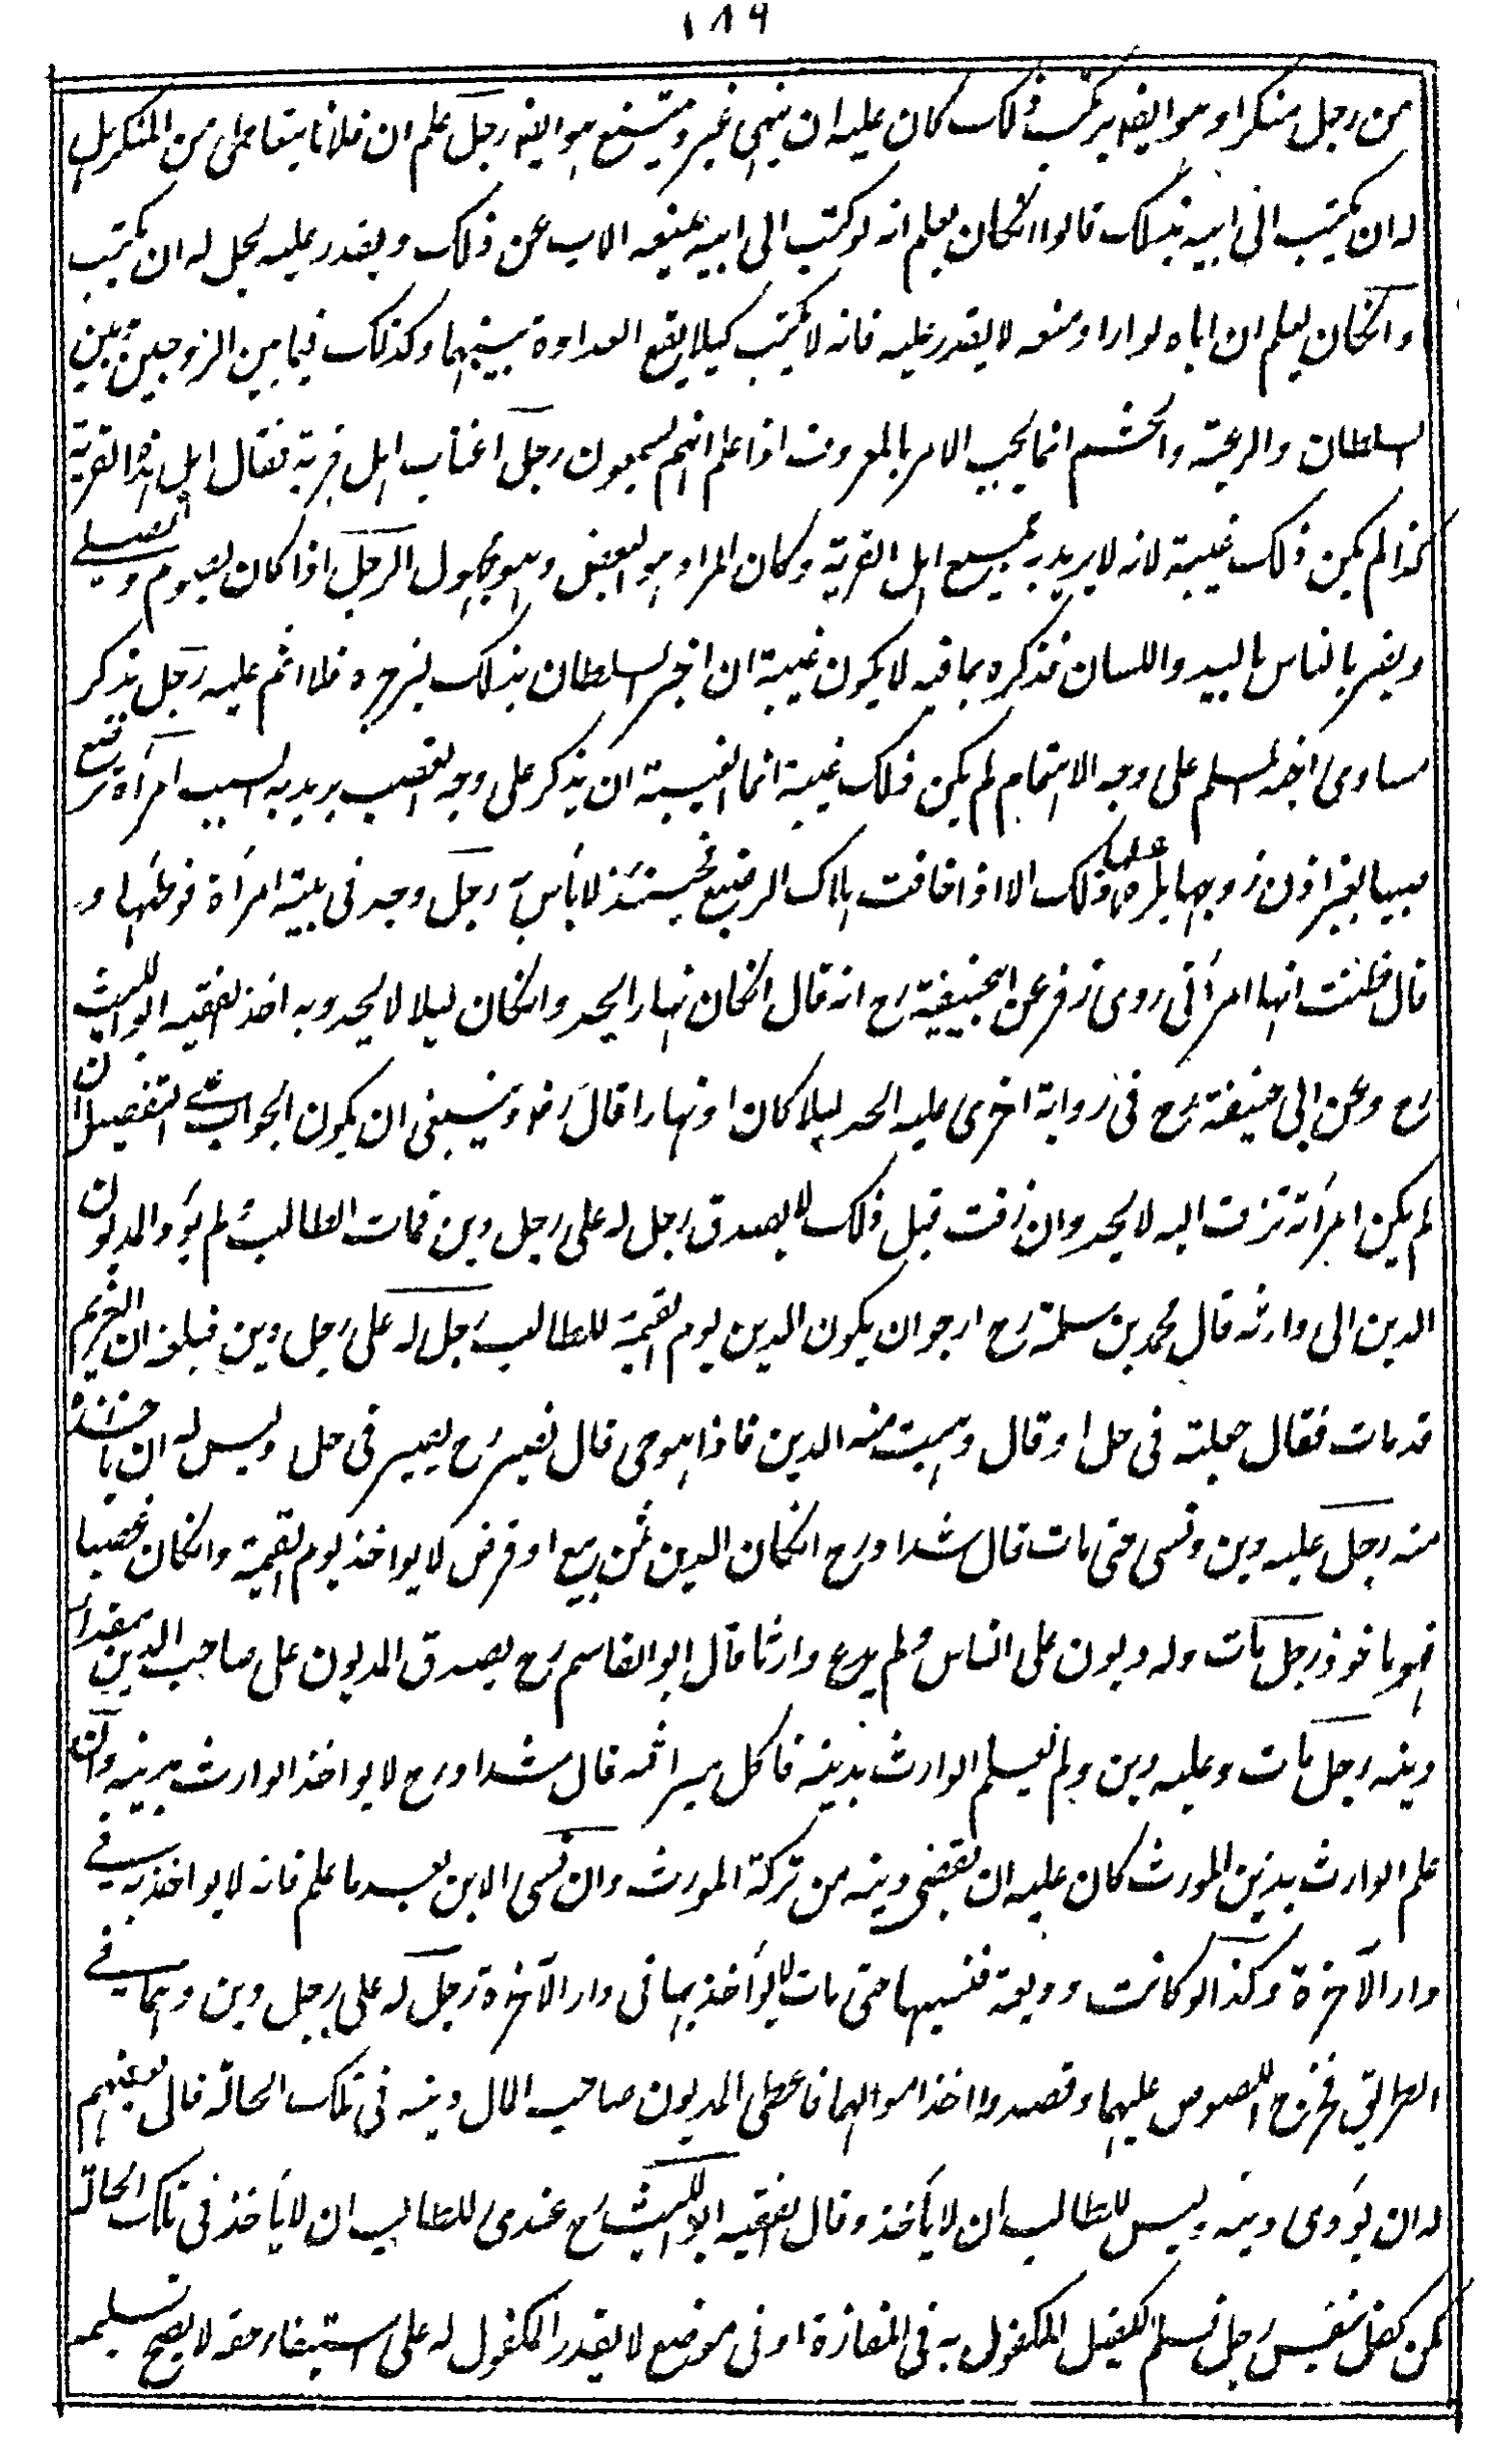 ١٨٩
من رجل منكرا وهو ايضا يرتكب ذلك كان عليه ان ينهى غيره ويمتنع هو ايضا رجل علم ان فلانا يتعاطى من المنكر هل
له ان يكتب الى ابيه بذلك قالوا انكان يعلم انه لو كتب الى ابيه يمنعه الاب عن ذلك ويقدر عليه يحل له ان يكتب
وانكان يعلم ان اباه لو اراد منعه لا يقدر عليه فانه لا يكتب كيلا يقع العداوة بينهما وكذلك فيما بين الزوجين وبين
السلطان والرعية والحشم انما يجب الامر بالمعروف اذا علم انهم يسمعون رجل اغتاب اهل قرية فقال اهل هذه القرية
كذا لم يكن ذلك غيبة لانه لا يريد به جميع اهل القرية وكان المراد هو البعض وهو مجهول الرجل اذا كان يصوم ويصلى
ويضر بالناس باليد واللسان فذكره بما فيه لا يكون غيبة ان اخبر السلطان بذلك ليزجره فلا اثم عليه رجل يذكر
مساوى اخيه المسلم على وجه الاهتمام لم يكن ذلك غيبة انما الغيبة ان يذكر على وجه الغضب يريد به السب امرأة ترضع
صبيا بغير اذن زوجها يكره لها ذلك الا اذا خافت هلاك الرضيع فحينئذ لا بأس به رجل وجد فى بيته امرأة فوطئها و
قال ظننت انها امرأتى روى زفر عن ابيحنيفة رح انه قال انكان نهارا يحد وانكان ليلا لا يحد وبه اخذ الفقيه ابو الليث
رح وعن ابى حنيفة رح فى رواية اخرى عليه الحد ليلا كان او نهارا قال رض وينبغى ان يكون الجواب على التفصيل ان
لم يكن امرأته زفت اليه لا يحد وان زفت قبل ذلك لا يصدق رجل له على رجل دين فمات الطالب ولم يؤد المديون
الدين الى وارثه قال محمد بن سلمة رح ارجو ان يكون الدين يوم القيمة للطالب رجل له على رجل دين فبلغه ان الغريم
قد مات فقال جعلته فى حل او قال وهبت منه الدين فاذا هو حى قال نصير رح يصير فى حل وليس له ان يأخذ
منه رجل عليه دين ونسى حتى مات قال شداد رح انكان الدين ثمن بيع او قرض لا يواخذ يوم القيمة وانكان غصبا
فهو ماخوذ رجل مات وله ديون على الناس ولم يدع وارثا قال ابو القاسم رح يصدق المديون على صاحب الدين مقدار
دينه رجل مات وعليه دين ولم يعلم الوارث بدينه فاكل ميراثه قال شداد رح لا يواخذ الوارث بدينه وان
علم الوارث بدين المورث كان عليه ان يقضى دينه من تركة المورث وان نسى الابن بعد ما علم فانه لا يواخذ به فى
دار الآخرة وكذا لو كانت وديعة فنسيها حتى مات لا يؤاخذ بها فى دار الآخرة رجل له على رجل دين وهما فى
الطريق فخرج اللصوص عليهما وقصدوا اخذ اموالهما فاعطى المديون صاحب المال دينه فى تلك الحالة قال بعضهم
له ان يؤدى دينه وليس للطالب ان لا يأخذ وقال الفقيه ابو الليث رح عندى للطالب ان لا يأخذ فى تلك الحالة
كمن كفل بنفس رجل فسلم الكفيل المكفول به فى المفازة او فى موضع لا يقدر المكفول له على استيفاء حقه لا يصح تسليمه